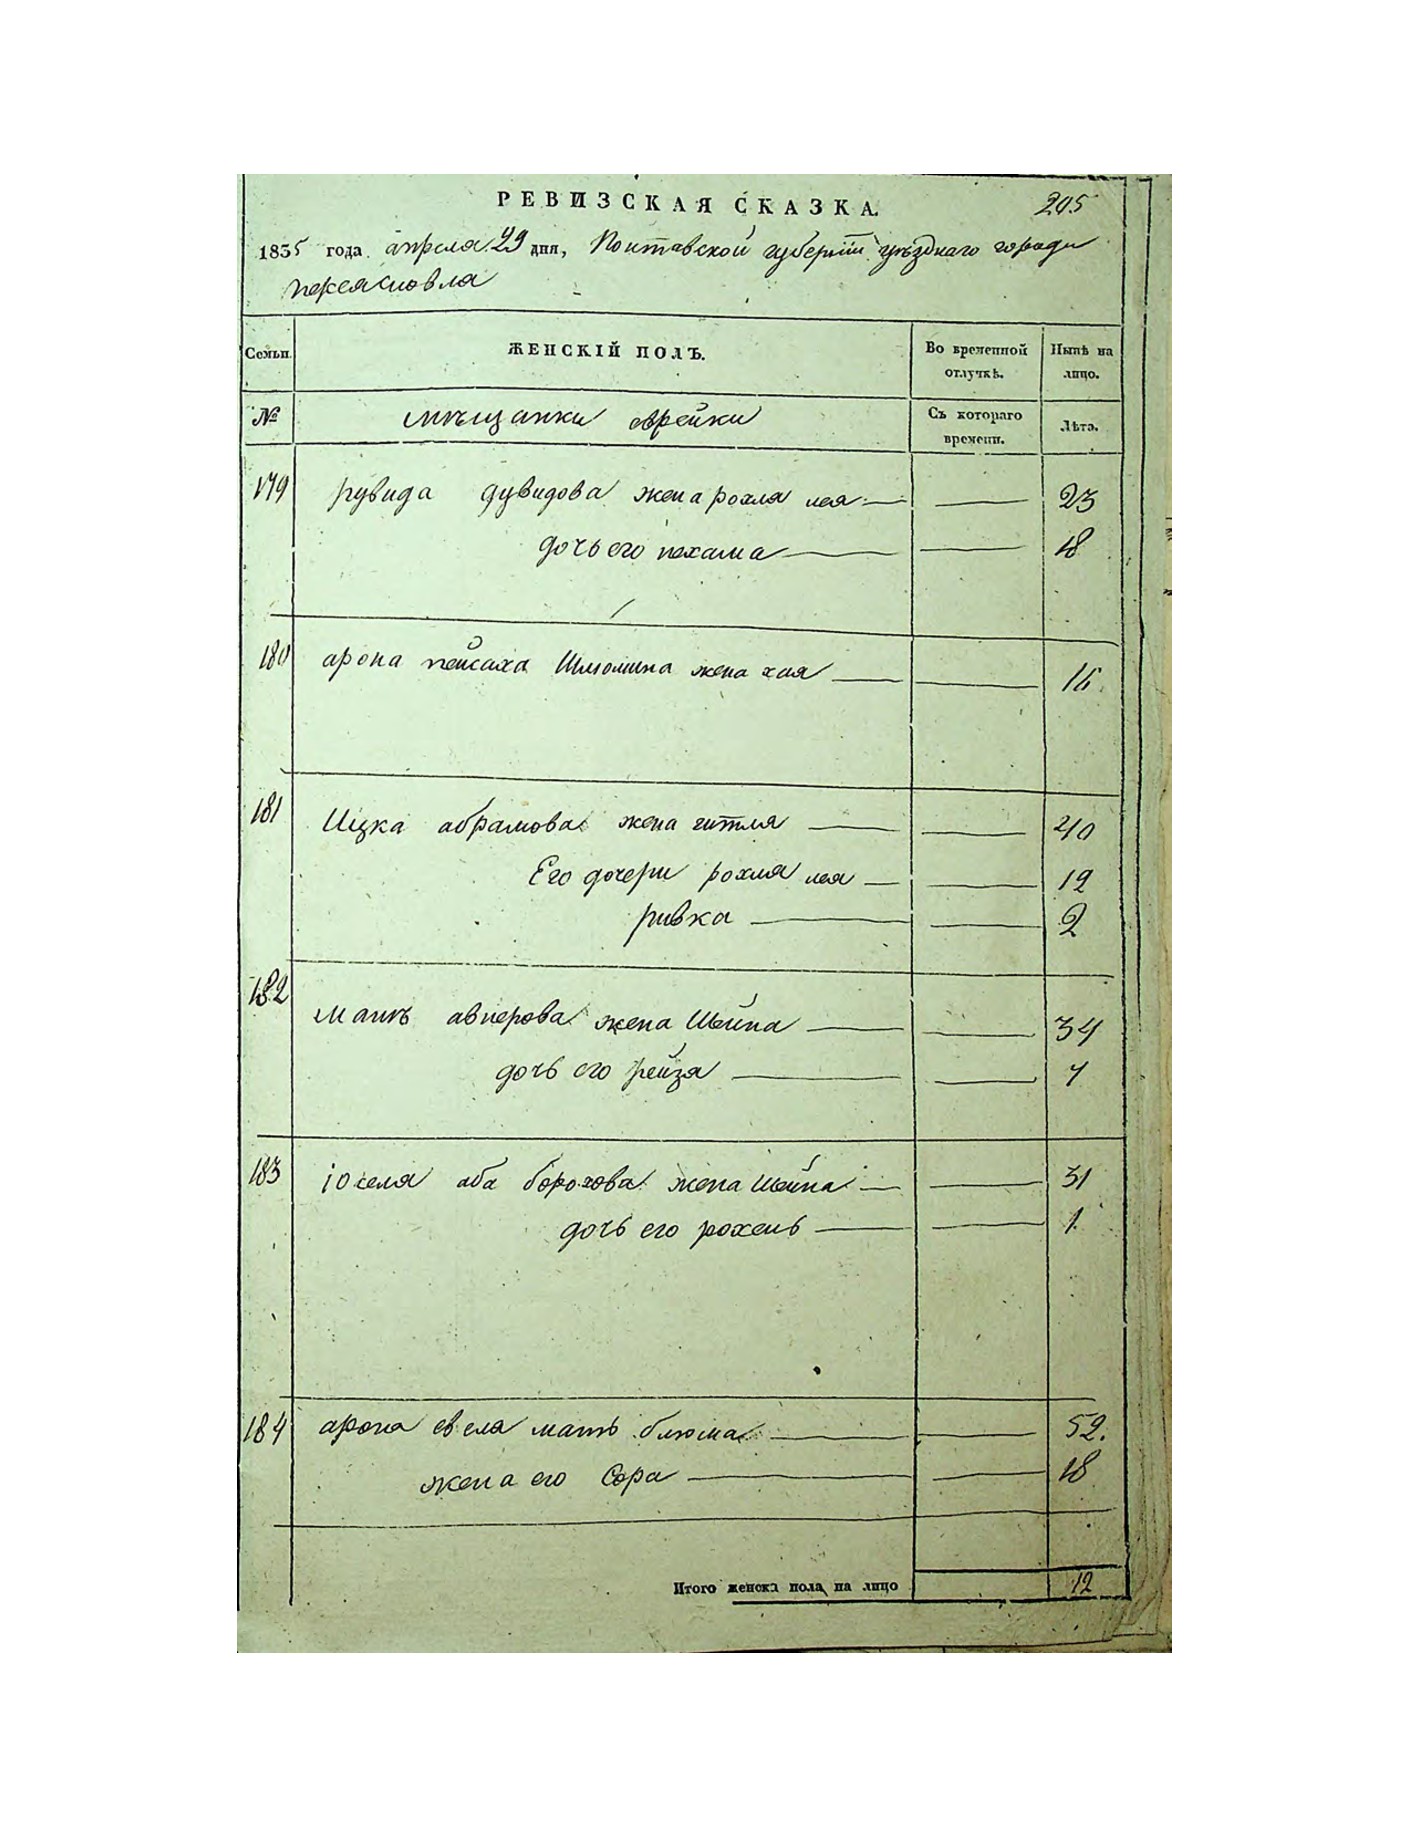 РЕВИЗСКАЯ СКАЗКА.
205
1835 года апреля 29 дня, Полтавской губернїи уѣзднаго города
переяславля
Семьи.
ЖЕНСКІЙ ПОЛЪ.
Во временной отлучкѣ.
Нынѣ на лицо.
№
мѣщанки еврейки
Съ котораго времени.
Лѣта.
179 рувида дувидова жена рохля лея 23
дочь его нехама 18
180 арона пейсаха Шлюмина жена хая 16
181 Ицка абрамова жена гитля 40
Его дочери рохля лея 19
ривка 2
182 авнерова жена Шейна 34
дочь его рейзя 7
183 іоселя аба борохова жена Шейна 31
дочь его рохель 1
184 арона евеля мать блюма 52.
жена его Сора 18
Итого женска пола на лицо 12